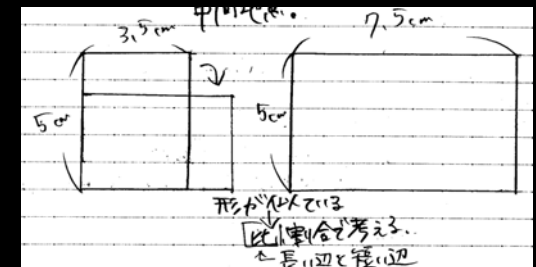 3.5cm
7.5cm
5cm
5cm
形が似ている
比、割合で考える.
←長い辺と短い辺